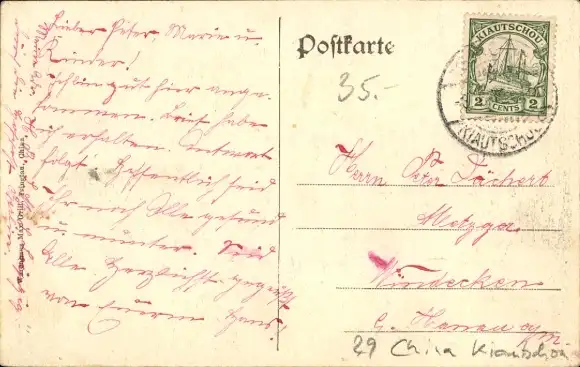 Lieber Peter, Marie u.
Kinder!
Schon gut hier ange-
kommen. Brief habe
ich erhalten. Antwort
folgt. Hoffentlich seid
Ihr noch Alle gesund
u. munter. Seid
Alle herzlichst gegrüßt
von Eurem Hans.
Postkarte
35.-
KIAUTSCHOU
2 CENTS 2
KIAUTSCHOU
Herrn Peter Dächert
Metzger
Windecken
b. Hanau a/M.
29 China Kiautschou